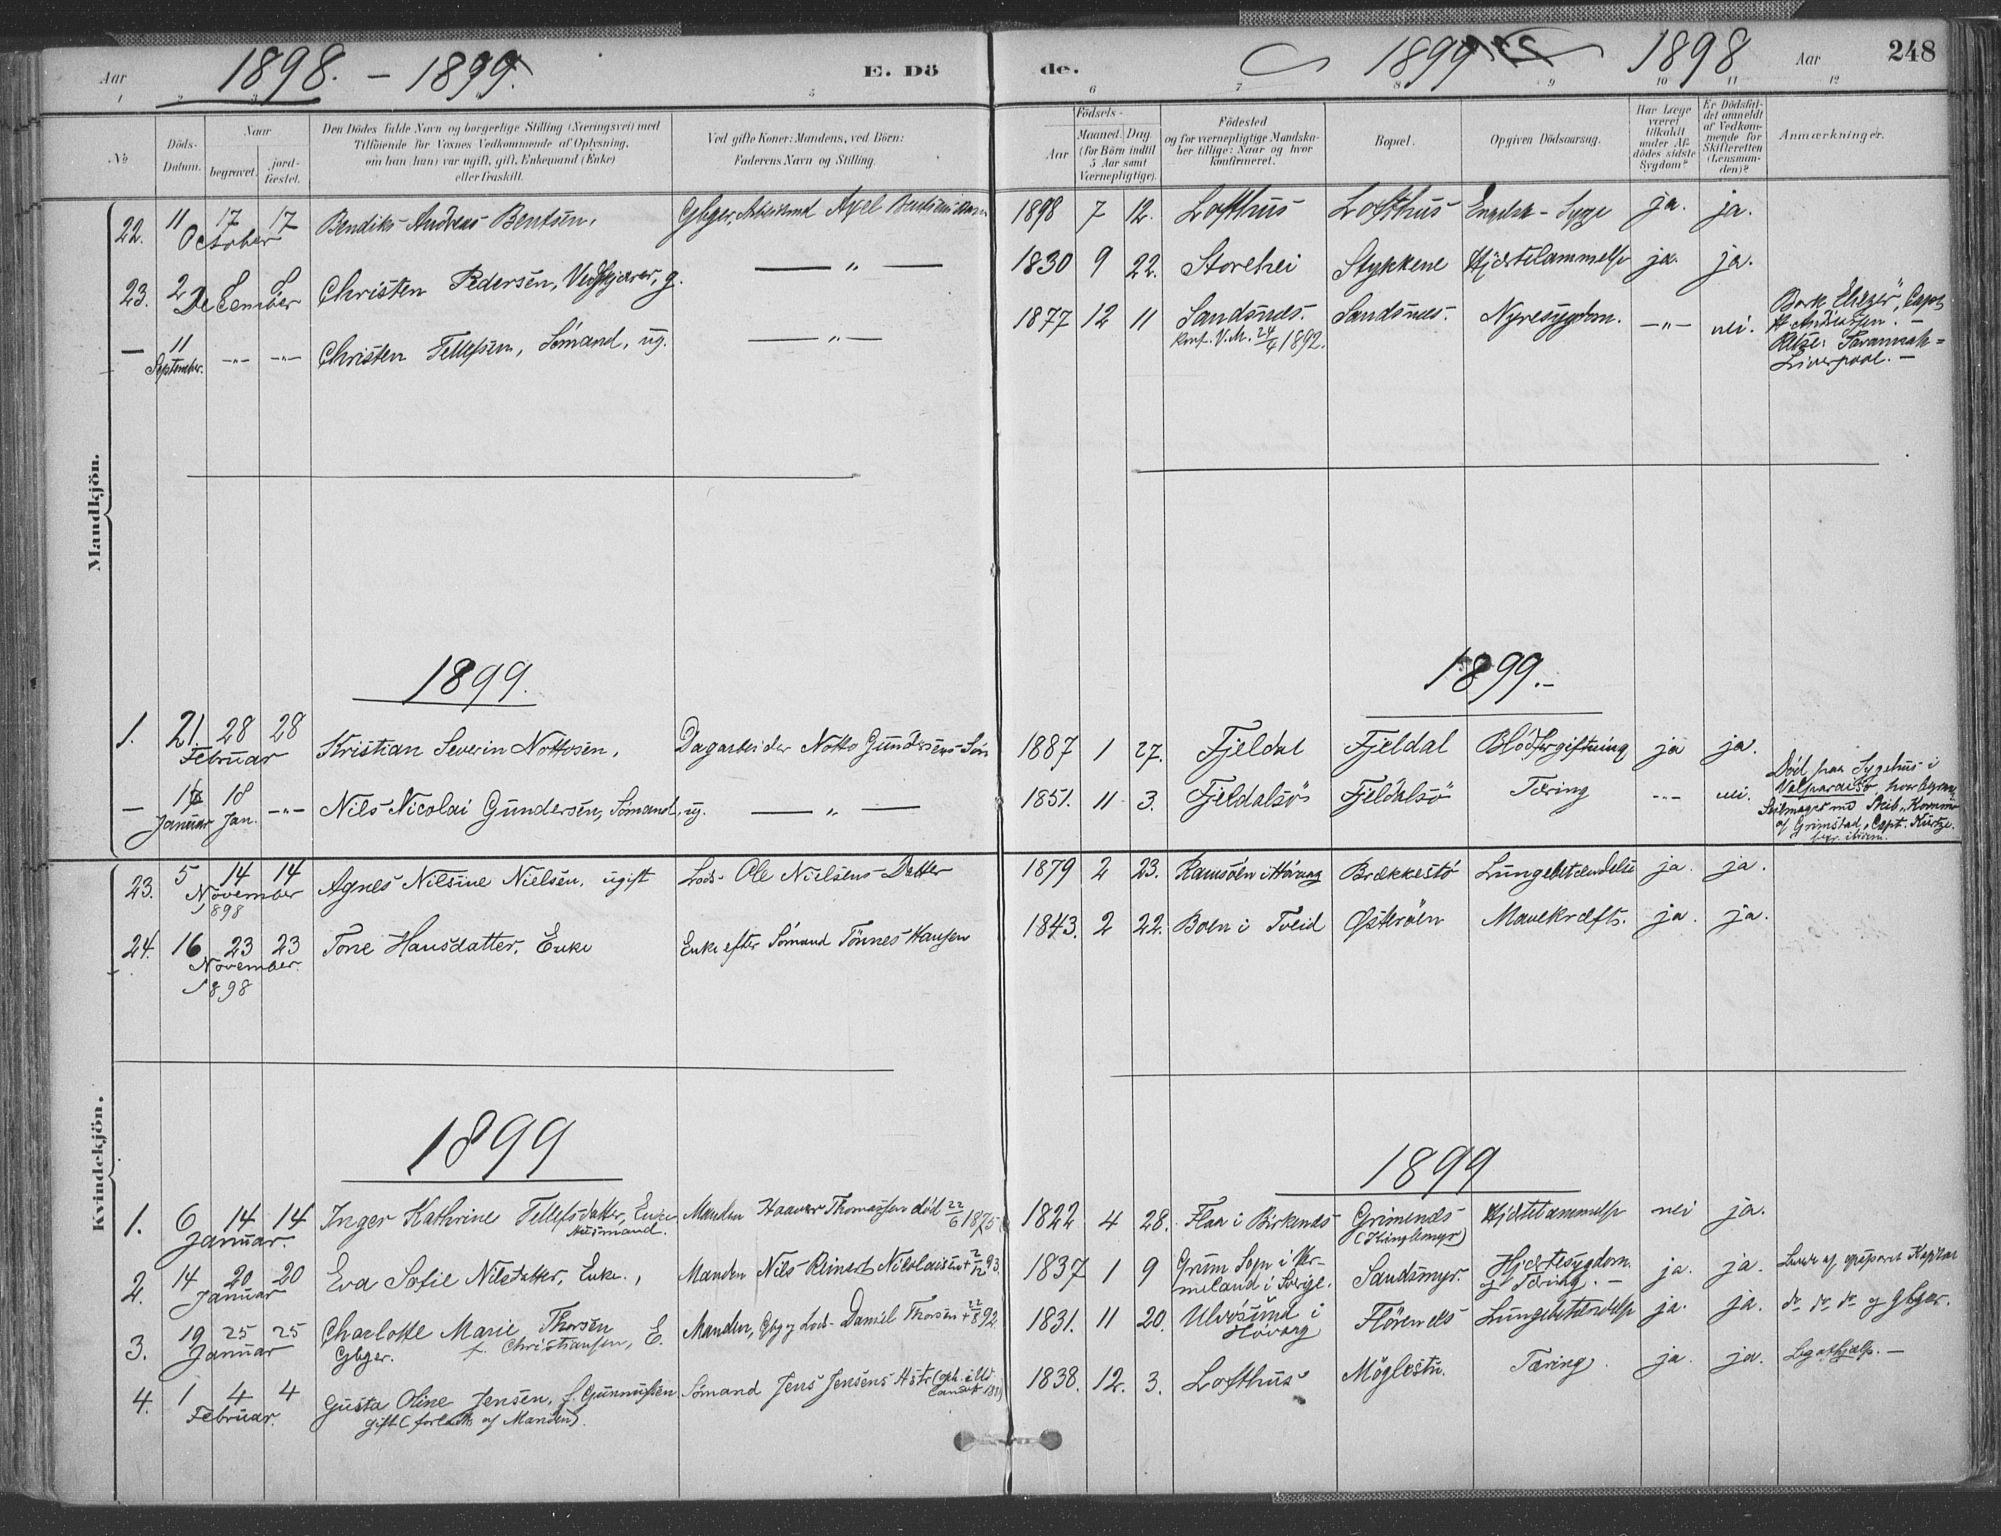 Aar 1898. – 1899. E. Döde. 1899 1898 Aar 248
1 2 3 5 6 7 8 9 10 11 12
No
Döds-Datum.
Naar
begravet.
jordfæstet.
Den Dödes fulde Navn og borgerlige Stilling (Næringsvei) med
Tilföiende for Voxnes Vedkommende af Oplysning,
om han (hun) var ugift, gift, Enkemand (Enke)
eller fraskilt.
Ved gifte Koner: Mandens, ved Börn:
Faderens Navn og Stilling.
Födsels-
Aar
Maaned. Dag.
(for Börn indtil
5 Aar samt
Værnepligtige).
Födested
og for værnepligtige Mandska-
ber tillige: Naar og hvor
konfirmeret.
Bopæl.
Opgiven Dödsaarsag.
Har Læge
været
tilkaldt
under Af-
dödes sidste
Sygdom?
Er Dödsfal-
det anmeldt
af Vedkom-
mende for
Skifteretten
(Lensman-
den)?
Anmærkninger.
Mandkjön.
22. 11 17 17 October Bendiks Andreas Bentsen, Gbger, Axel 1898 7 12. Lofthus Lofthus Engelsk-Syge ja. ja.
23. 2 8 8 December Christen Pedersen, Vedkjører, g. — " — 1830 9 22. Storehei Stykkene Hjertelammelse ja. ja.
— 11 September. —"— —"— Christen Tellefsen, Sömand, ug. — " — 1877 12 11 Sandsnæs. Konf. V.M. 24/4 1892. Sandsnæs. Nyresygdom. —"— nei. Bark "Eliezer", Capt.
Reise: Savannah-
Liverpool. —
1899. 1899.–
1. 21. 28 28 Februar Kristian Severin Nottosen, Dagarbeider Notto Gundersens Sön 1887 1 27. Fjeldal Fjeldal Blodforgiftning ja ja.
— Januar 18 Jan. —"— Nils Nicolai Gundersen, Sömand, ug. — " — 1851. 11 3. Fjeldalsö Fjeldalsö Tæring —"— nei. Död paa Sygehus i
Valparaiso, hvor
Seilmager med Skib
af Grimstad, Capt.
Kvindekjön.
23. 5 14 14 November 1898 Agnes Nilsine Nielsen, ugift Lods Ole Nielsens Datter 1879 2 23. Ramsöen i Hövaag Brækkestö Lungebetændelse ja. ja.
24. 16 23 23 November. 1898 Tone Hansdatter, Enke Enke efter Sömand Tönnes Hansen 1843. 2 22. Boen i Tveid Østeröen Mavekræft. ja. ja.
1899 1899
1. 6 14 14 Januar. Inger Kathrine Tellefsdatter, Enke Manden Haaver Thomassen död 22/6 1875 1822 4 28. Flaa i Birkenæs Grimenæs (Kinglemyr) Hjertelammelse nei ja.
2. 14 20 20 Januar Eva Sofie Nilsdatter, Enke., Manden Nils Reinert Nicolaisen + 2/12 93. 1837 1 9 Grum Sogn i Ver-
meland i Sverige. Sandsmyr. Hjertesygdom.
og Tæring. — ja. ja. Lever af opsparet Kapital
3. 19 25 25 Januar Charlotte Marie Thorsen
Gbger. f. Christiansen, E. Manden, Gbg og Lods Daniel Thorsen + 22/8 92. 1831. 11 20. Ulvösund i
Hövaag Flörenæs Lungebetændelse ja. ja. do do do og Gbger.
4. 1 4 4 Februar. Gusta Oline Jensen, f. Gunnufsen
gift (forladt af Manden). Sömand Jens Jensens Hstr 1838. 12. 3. Lofthus Möglestu. Tæring. ja. ja. Legathjælp. —